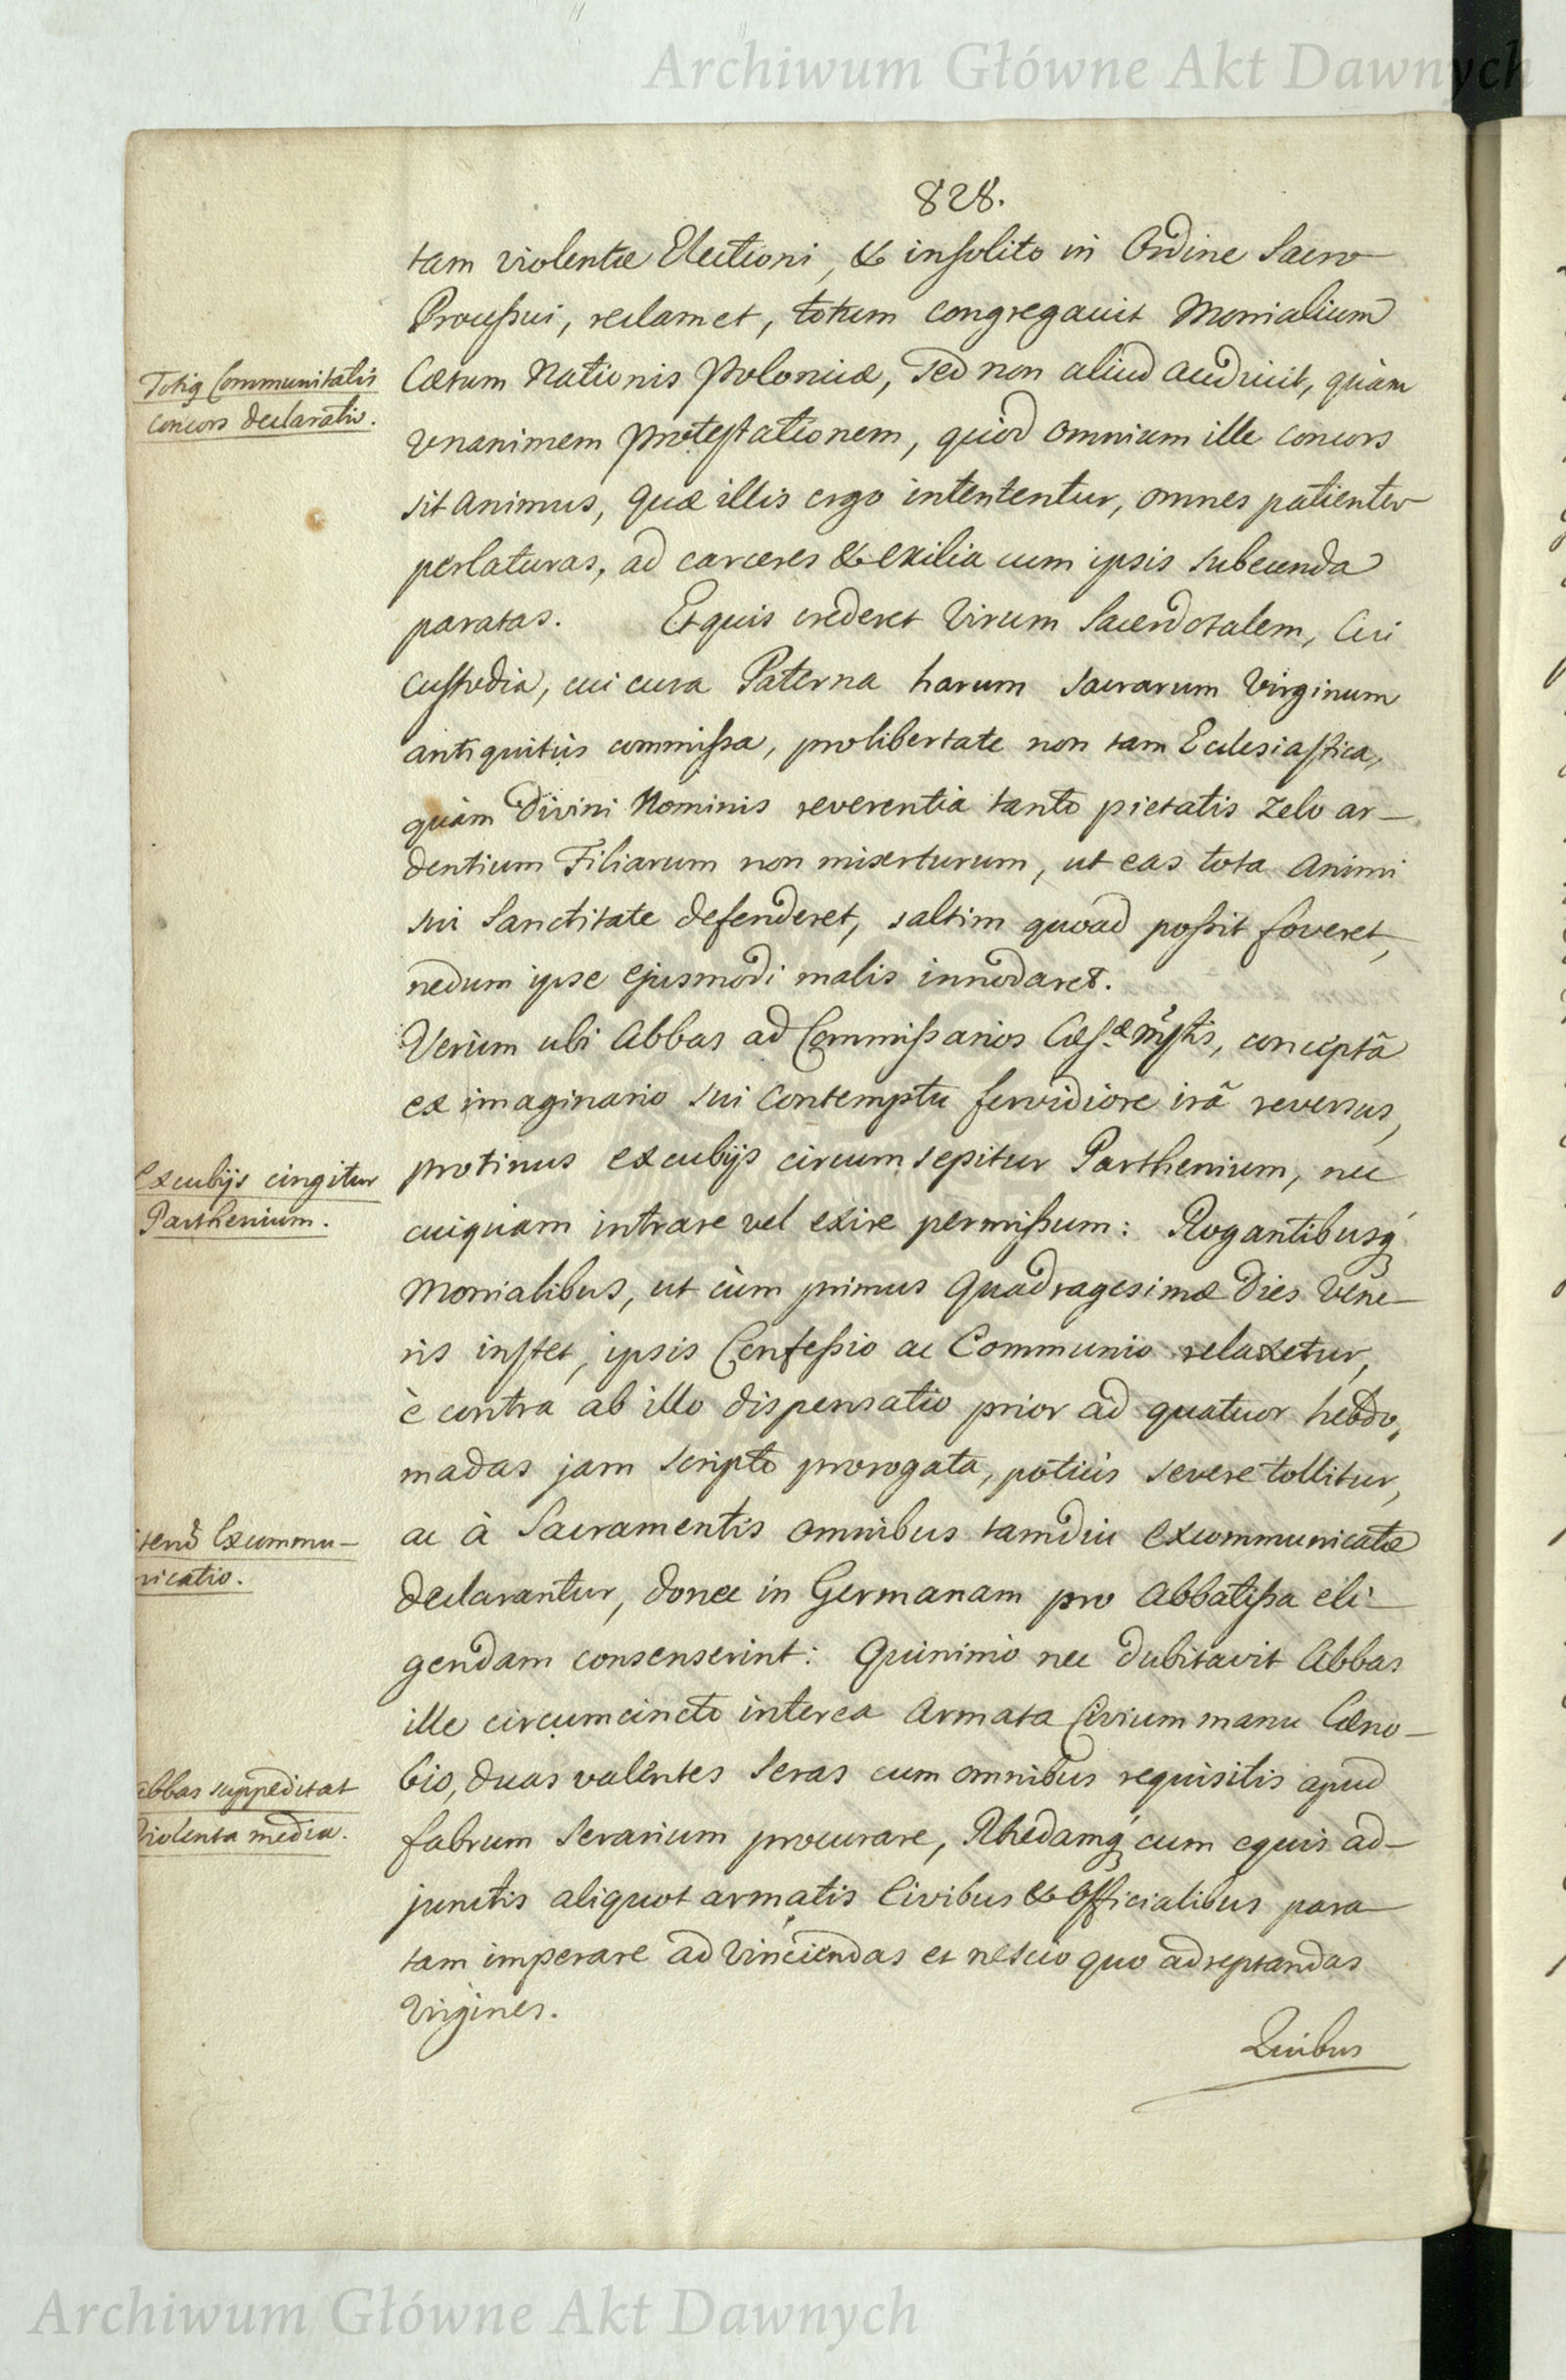 Archiwum Główne Akt Dawnych
828.
tam violentæ Electioni, & insolito in Ordine Sacro
Processui, reclamet, totum congregauit Monialium
Totiq Communitatis
concors declaratio.
Cœtum Nationis Polonicæ, sed non aliud audiuit, quàm
vnanimem protestationem, quòd omnium ille concors
sit animus, quæ illis ergo intententur, omnes patienter
perlaturas, ad carceres & exilia cum ipsis subeunda
paratas. Et quis crederet Virum Sacerdotalem, Cui
Custodia, cui cura Paterna harum sacrarum Virginum
antiquitùs commissa, pro libertate non tam Ecclesiastica,
quàm Divini Nominis reverentia tanto pietatis zelo ar-
dentium Filiarum non miserturum, ut eas tota Animi
sui Sanctitate defenderet, saltim quoad possit foveret,
nedum ipse ejusmodi malis innodaret.
Verùm ubi Abbas ad Commissarios Cæsæ Mstis, conceptâ
ex imaginario sui contemptu fervidiore irâ reversus,
Excubijs cingitur
Parthenium.
protinus excubijs circumsepitur Parthenium, nec
cuiquam intrare vel exire permissum: Rogantibusq́
Monialibus, ut cùm primus Quadragesimæ Dies Vene-
ris instet, ipsis Confessio ac Communio relaxetur,
è contra ab illo dispensatio prior ad quatuor hebdo,
madas jam scripto prorogata, potiùs severe tollitur,
Excommu-
nicatio.
ac à Sacramentis omnibus tamdiu excommunicatæ
declarantur, donec in Germanam pro Abbatissa eli-
gendam consenserint: Quinimò nec dubitavit Abbas
ille circumcincto interea armata Civium manu Cœno-
Abbas suppeditat
violenta media.
bio, duas valentes Seras cum omnibus requisitis apud
fabrum Serarium procurare, Rhedamq́ cum equis ad-
junctis aliquot armatis Civibus & Officialibus para-
tam imperare ad vinciendas et nescio quo adreptandas
Virgines.
Quibus
Archiwum Główne Akt Dawnych